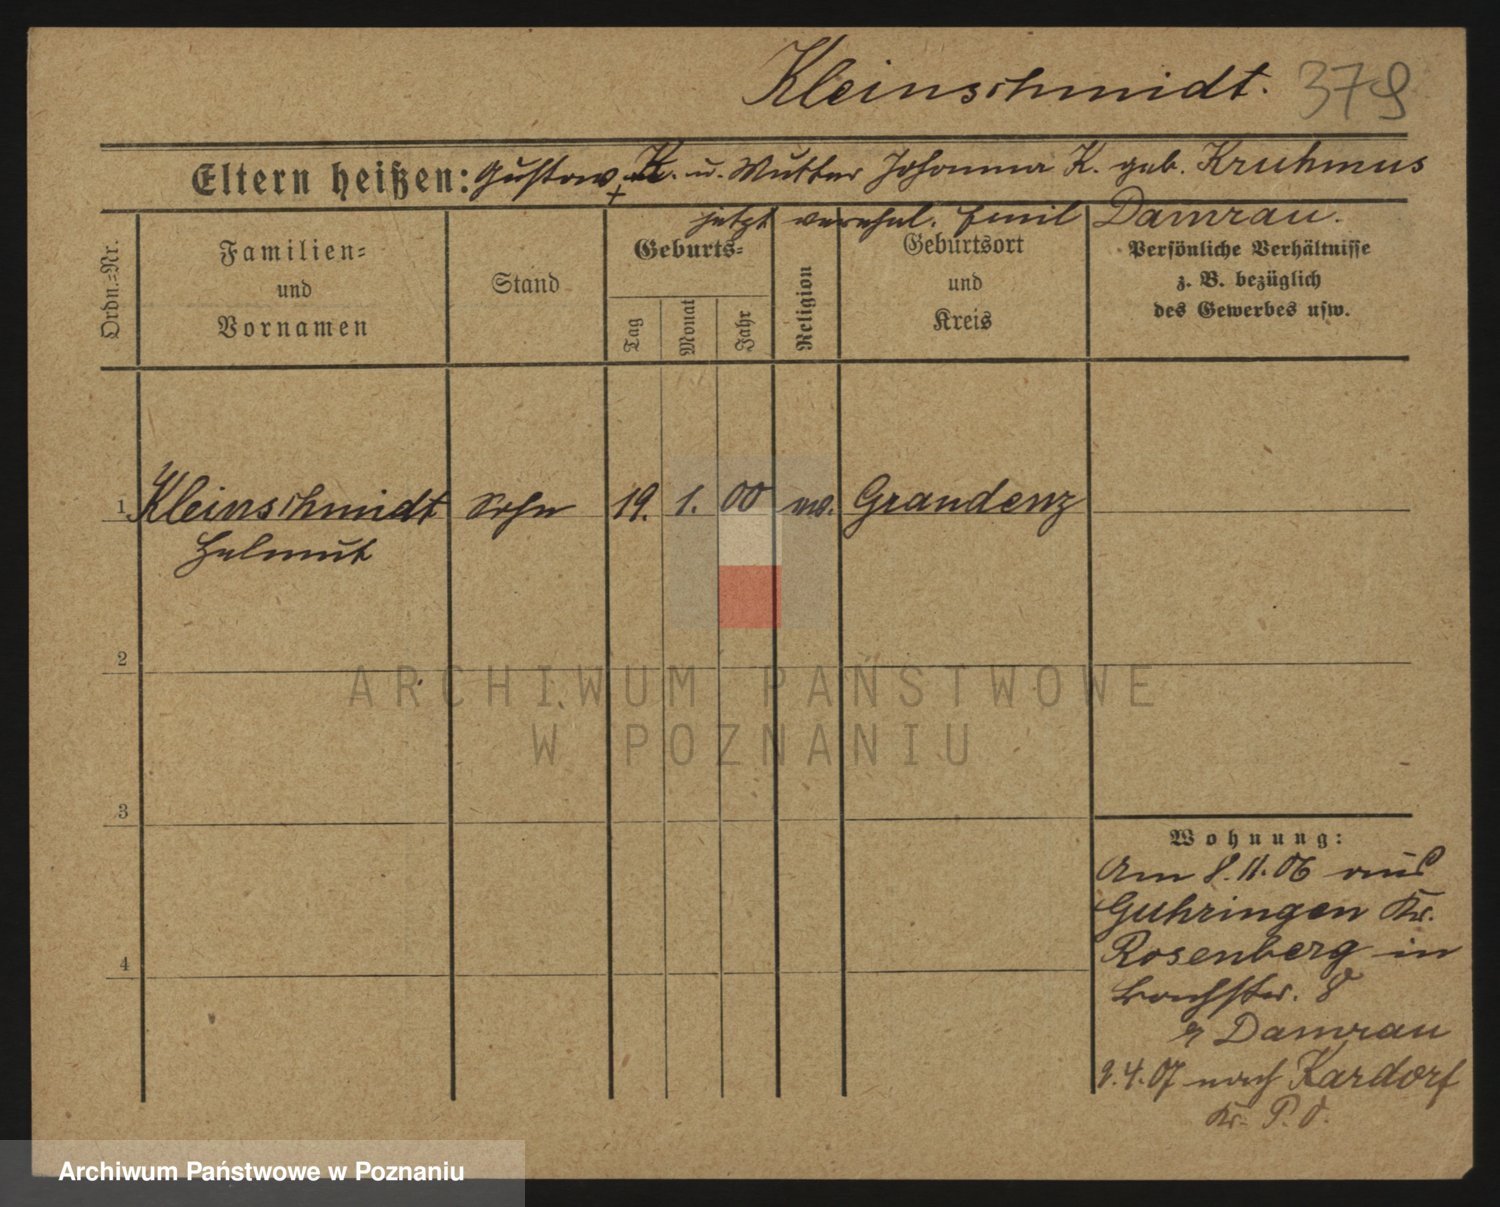 Kleinschmidt. 379
Eltern heißen: Gustav K. u. Mutter Johanna K. geb. Kruhmus
+ jetzt verehel. Emil Damrau.
Ordn.=Nr.
Familien=
und
Vornamen
Stand
Geburts=
Tag
Monat
Jahr
Religion
Geburtsort
und
Kreis
Persönliche Verhältnisse
z. B. bezüglich
des Gewerbes usw.
1 Kleinschmidt Sohn 19. 1. 00 ev. Graudenz
Helmut
2
3
4
Wohnung:
Am 8.11.06 aus
Guhringen Kr.
Rosenberg in
Bachstr. 8
Damrau
9.4.07 nach Kardorf
Kr. P. O.
ARCHIWUM PAŃSTWOWE
W POZNANIU
Archiwum Państwowe w Poznaniu